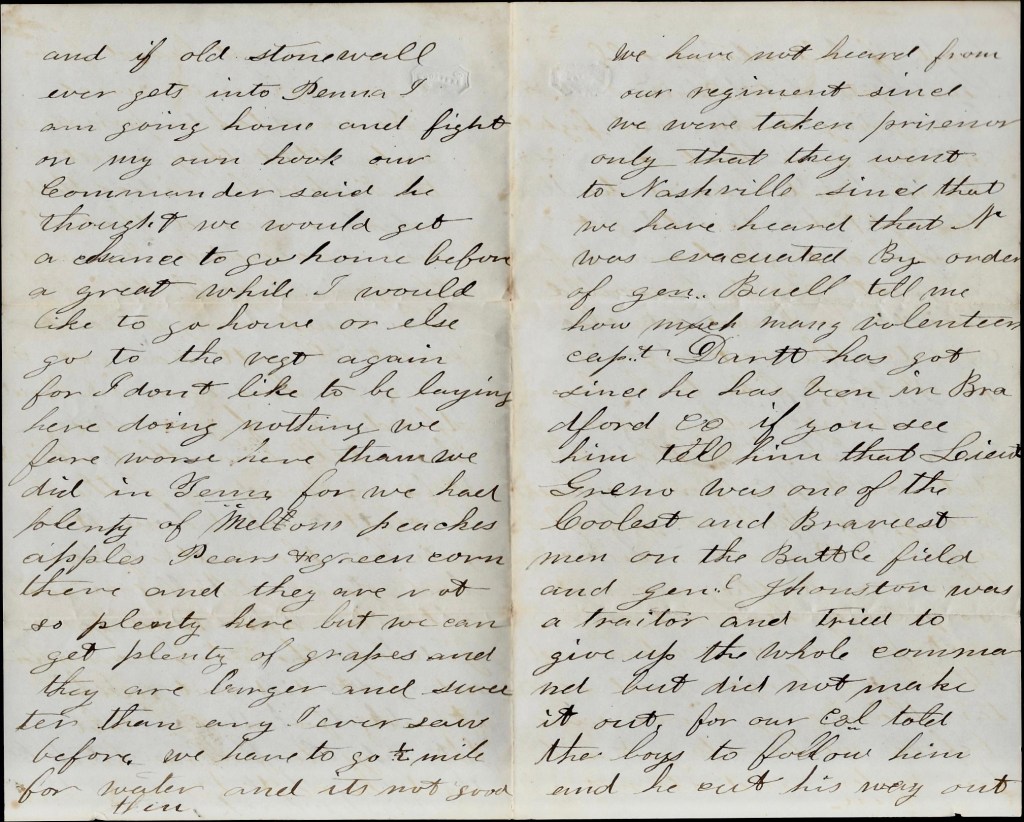 and if old stonewall
ever gets into Penna I
am going home and fight
on my own hook our
Commander said he
thought we would get
a chance to go home before
a great while I would
like to go home or else
go to the regt again
for I dont like to be laying
here doing nothing we
fare worse here than we
did in Tenn, for we had
plenty of Mellons peaches
apples Pears & green corn
there and they are not
so plenty here but we can
get plenty of grapes and
they are larger and swee
ter than any I ever saw
before. we have to go mile
for water and its not good
then
We have not heard from
our regiment since
we were taken prisenor
only that they went
to Nashville since that
we have heard that N
was evacuated By order
of gen.. Buell tell me
how much many volenteers
cap.t Dartt has got
since he has been in Bra
dford Co if you see
him tell him that Lieut
Greno was one of the
Coolest and Braveest
men on the Battle field
and gen.l Jhonston was
a traitor and tried to
give up the whole comma
nd but did not make
it out, for our Col told
the boys to follow him
and he cut his way out